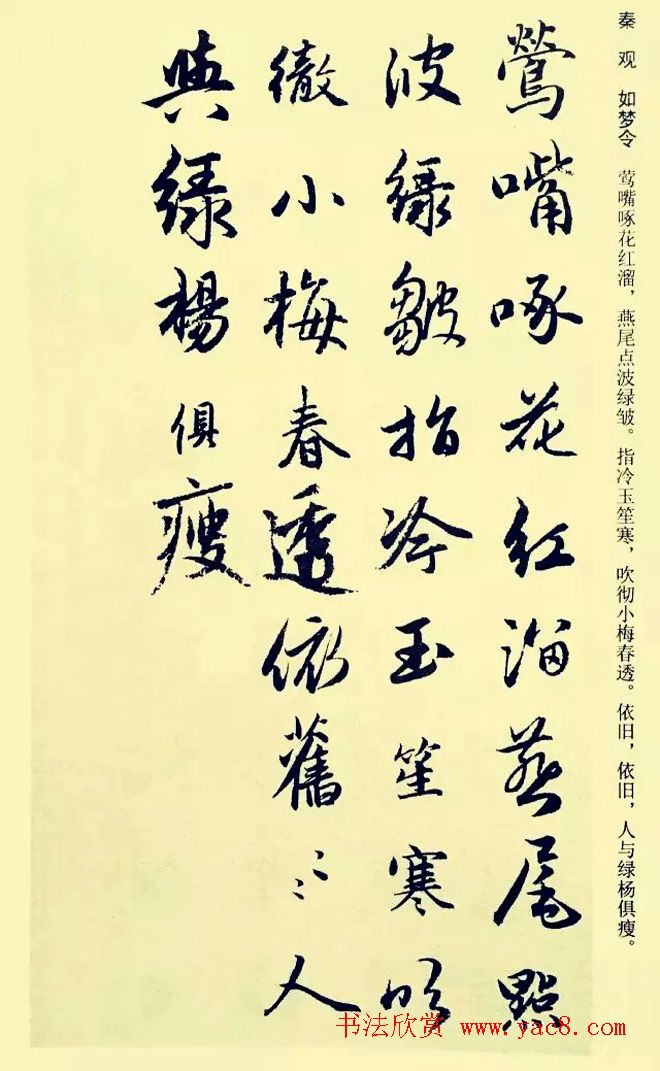 秦观 如梦令 莺嘴啄花红溜，燕尾点波绿皱。指冷玉笙寒，吹彻小梅春透。依旧，依旧，人与绿杨俱瘦。
鶯嘴啄花紅溜燕尾點
波緑皺指冷玉笙寒吹
徹小梅春透依舊〻〻人
與緑楊俱瘦
书法欣赏 www.yac8.com